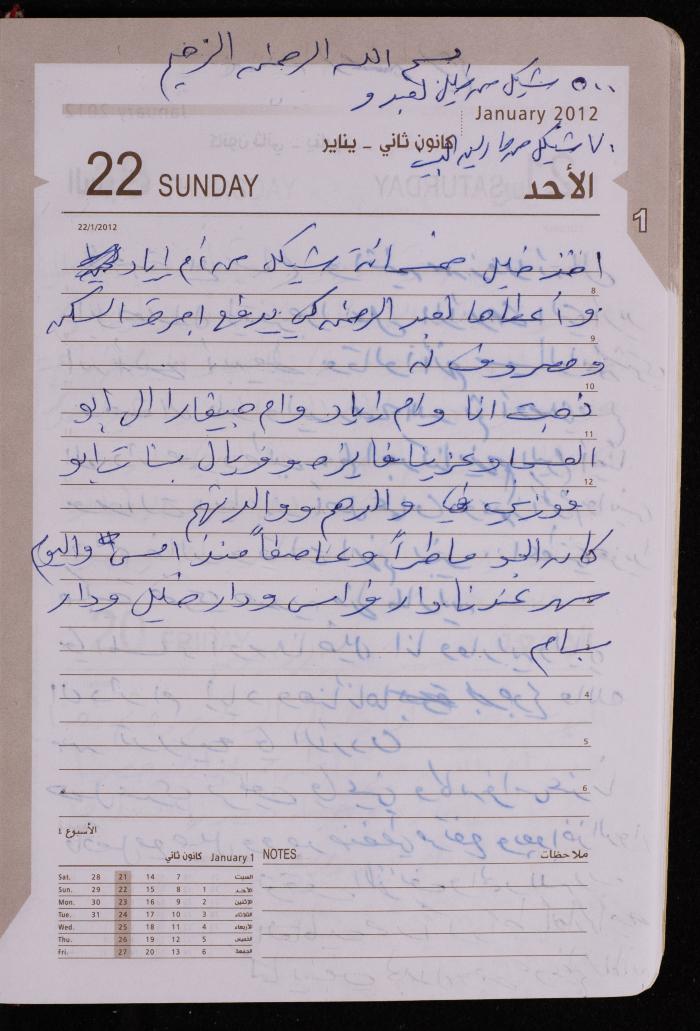 بسم الله الرحمن الرحيم
٥٠٠ شيكل من خليل لعبد و
January 2012
٧٠ شيكل من دار البيت
كانون ثاني - يناير
22 SUNDAY
الأحد
1
22/1/2012
اخذ خليل خمسمائة شيكل من أم اياد
وأعطاها لعبد الرحمن كي يدفع اجرة السكن
8
ومصروف له
9
10
ذهبت انا وام اياد وام جيفارا الى ابو
11
العبد وعزينا فايزه وفريال بنات ابو
12
فوزي في والدهم ووالدتهم
كان الجو ماطراً وعاصفاً منذ امس واليوم
سهر عندنا دار فراس ودار خليل ودار
بسام
4
5
6
الأسبوع ٤
كانون ثاني January 1
Sat. 28 21 14 7 السبت
Sun. 29 22 15 8 1 الأحد
Mon. 30 23 16 9 2 الإثنين
Tue. 31 24 17 10 3 الثلاثاء
Wed. 25 18 11 4 الأربعاء
Thu. 26 19 12 5 الخميس
Fri. 27 20 13 6 الجمعة
NOTES ملاحظات